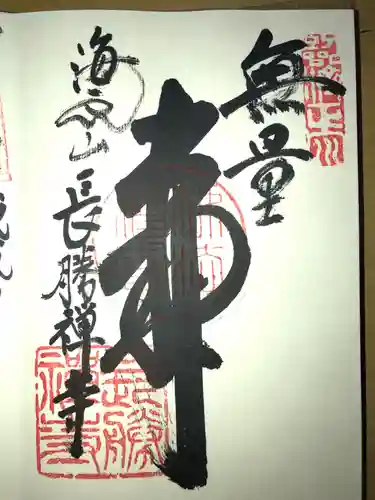 無量
寿
海雲山長勝禅寺